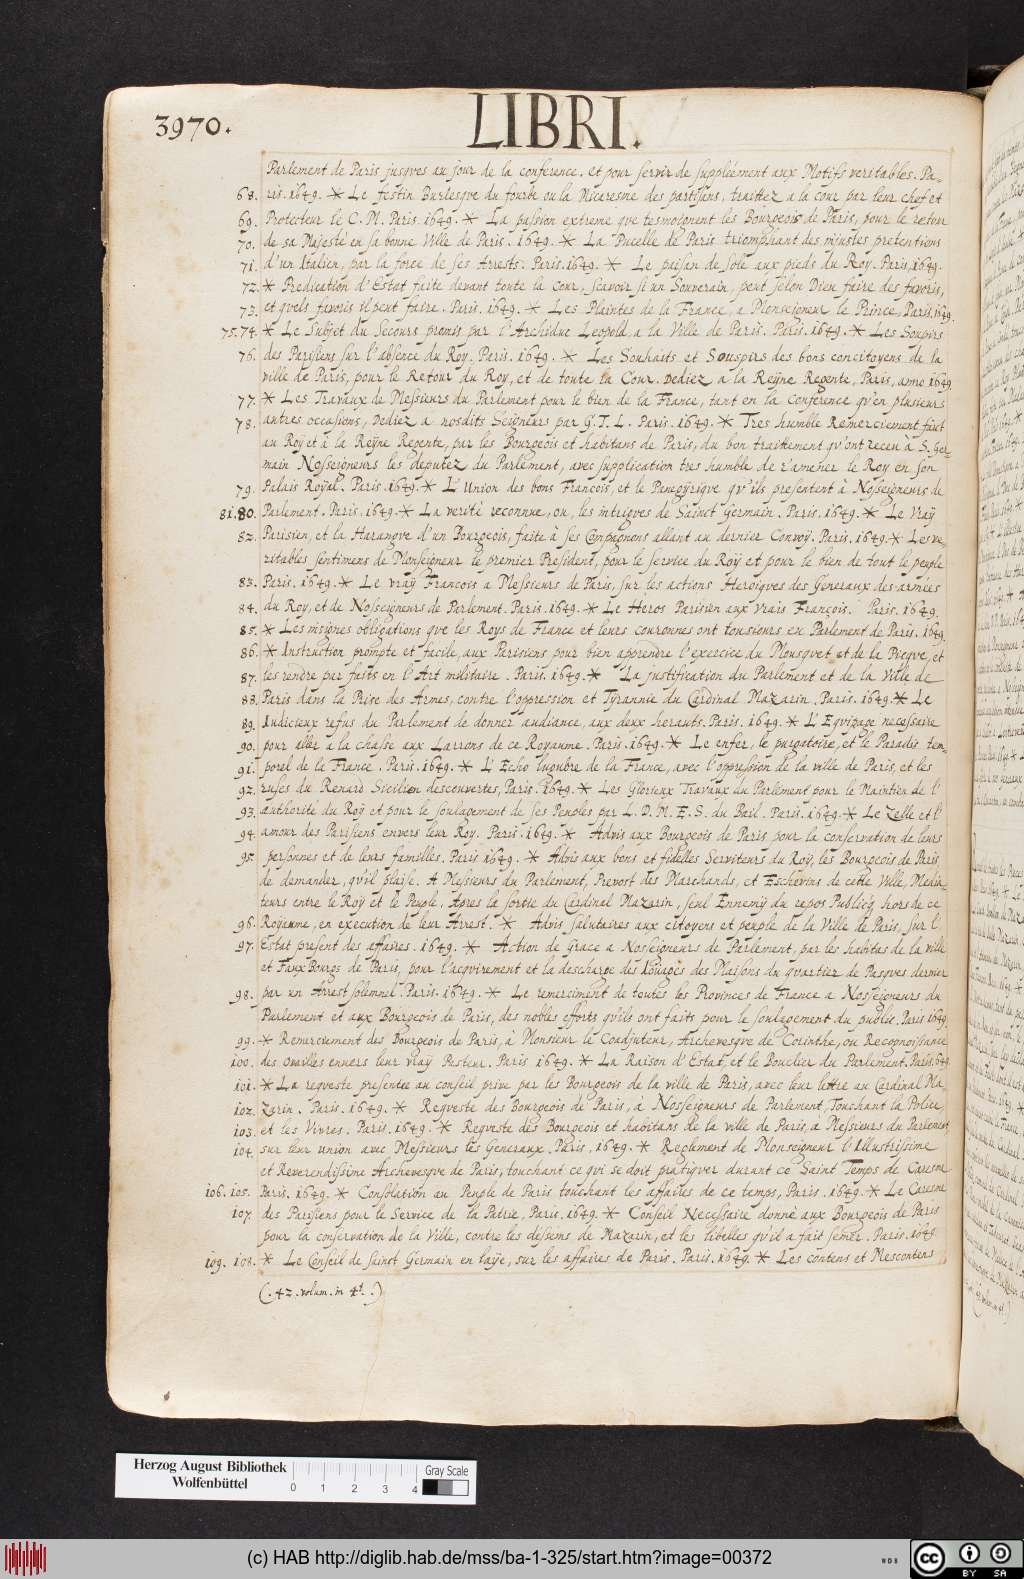 3970.
LIBRI.
Parlement de Paris jusques au jour de la conference. et pour servir de suppléement aux Motifs veritables. Pa-
68. ris. 1649. * Le festin Burlesque du fourbe ou la Micaresme des partisans, traittez a la cour par leur chef et
69. Protecteur le C. M. Paris. 1649. * La passion extreme que tesmoignent les Bourgeois de Paris, pour le retour
70. de sa Majesté en sa bonne Ville de Paris. 1649. * La Pucelle de Paris triomphant des injustes pretentions
71. d'un Italien, par la force de ses Arrests. Paris. 1649. * Le paisan de sole aux pieds du Roy. Paris, 1649.
72. * Predication d'Estat faite devant toute la cour, scavoir si un Souverain, peut selon Dieu faire des favoris,
73. et quels favoris il peut faire. Paris. 1649. * Les Plaintes de la France, a Monseigneur le Prince, Paris, 1649.
75. 74. * Le Subject du Secours promis par l'Archiduc Leopold, a la Ville de Paris. Paris. 1649. * Les Soupirs
76. des Parisiens sur l'absence du Roy. Paris. 1649. * Les Souhaits et Souspirs des bons concitoyens de la
ville de Paris, pour le Retour du Roy, et de toute la Cour. Dediez a la Reyne Regente, Paris, anno 1649
77. * Les Travaux de Messieurs du Parlement pour le bien de la France, tant en la Conference qu'en plusieurs
78. autres occasions, Dediez a nosdits Seigneurs par G. T. L. Paris. 1649. * Tres humble Remerciement faict
au Roy et à la Reyne Regente, par les Bourgeois et habitans de Paris, du bon traittement qu'ont receu à S. Ger-
main Nosseigneurs les deputez du Parlement, avec supplication tres humble de r'amener le Roy en son
79. Palais Royal. Paris. 1649. * L'Union des bons François, et le Panegyrique qu'ils presentent à Nosseigneurs de
81. 80. Parlement. Paris. 1649. * La verité reconnue, ou, les intrigues de Sainct Germain. Paris. 1649. * Le Vray
82. Parisien, et la Harangue d'un Bourgeois, faite à ses Compagnons allant au dernier Convoy. Paris. 1649. * Les ve-
ritables sentimens de Monseigneur le premier President, pour le service du Roy et pour le bien de tout le peuple
83. Paris. 1649. * Le vray François a Messieurs de Paris, sur les actions Heroiques des Generaux des armées
84. du Roy, et de Nosseigneurs de Parlement. Paris. 1649. * Le Heros Parisien aux vrais François. Paris. 1649.
85. * Les insignes obligations que les Roys de France et leurs couronnes ont tousiours eu Parlement de Paris. 1649.
86. * Instruction prompte et facile, aux Parisiens pour bien apprendre l'exercice du Mousquet et de la Picque, et
87. les rendre parfaits en l'Art militaire. Paris. 1649. * La justification du Parlement et de la Ville de
88. Paris dans la Prise des Armes, contre l'oppression et Tyrannie du Cardinal Mazarin. Paris. 1649. * Le
89. Iudicieux refus du Parlement de donner audiance, aux deux herauts. Paris. 1649. * L'Equipage necessaire
90. pour aller a la chasse aux Larrons de ce Royaume. Paris. 1649. * Le enfer, le purgatoire, et le Paradis tem-
91. porel de la France. Paris. 1649. * L'Echo lugubre de la France, avec l'oppression de la ville de Paris, et les
92. ruses du Renard Sicilien descouvertes, Paris. 1649. * Les Glorieux Travaux du Parlement pour le Maintien de l'
93. authorité du Roy et pour le soulagement de ses Peuples par L. D. M. E. S. du Bail. Paris. 1649. * Le Zelle et l'
94. amour des Parisiens envers leur Roy. Paris. 1649. * Advis aux Bourgeois de Paris pour la conservation de leurs
95. personnes et de leurs familles. Paris 1649. * Advis aux bons et fidelles Serviteurs du Roy, les Bourgeois de Paris
de demander, qu'il plaise. A Messieurs du Parlement, Prevost des Marchands, et Eschevins de cette Ville, Media-
teurs entre le Roy et le Peuple. Apres la sortie du Cardinal Mazarin, seul Ennemy du repos Publicq hors de ce
96. Royaume, en execution de leur Arrest. * Advis salutaires aux citoyens et peuple de la Ville de Paris, sur l'
97. Estat present des affaires. 1649. * Action de Grace a Nosseigneurs de Parlement, par les habitas de la ville
et Faux Bourgs de Paris, pour l'acquirement et la descharge des loüages des Maisons du quartier de Pasques dernier
98. par un Arrest solemnel. Paris. 1649. * Le remerciment de toutes les Provinces de France a Nosseigneurs du
Parlement et aux Bourgeois de Paris, des nobles efforts qu'ils ont faits pour le soulagement du public. Paris 1649.
99. * Remerciement des Bourgeois de Paris, à Monsieur le Coadjuteur, Archevesque de Corinthe, ou Recognoissance
100. des Ovailles envers leur vray Pasteur. Paris 1649. * La Raison d'Estat, et le Bouclier du Parlement. Paris. 1649
101. * La requeste presentée au conseil prive par les Bourgeois de la ville de Paris, avec leur lettre au Cardinal Ma-
102. zarin. Paris. 1649. * Requeste des Bourgeois de Paris, à Nosseigneurs de Parlement, Touchant la Police
103. et les Vivres. Paris. 1649. * Requeste des Bourgeois et habitans de la ville de Paris, a Messieurs du Parlement
104. sur leur union avec Messieurs les Generaux. Paris, 1649. * Reglement de Monseigneur l'Illustrissime
et Reverendissime Archevesque de Paris, touchant ce qui se doit pratiquer durant ce Saint Temps de Caresme
106. 105. Paris. 1649. * Consolation au Peuple de Paris touchant les affaires de ce temps, Paris. 1649. * Le Caresme
107. des Parisiens pour le Service de la Patrie. Paris. 1649. * Conseil Necessaire donné aux Bourgeois de Paris
pour la conservation de la Ville, contre les desseins de Mazarin, et les libelles qu'il a fait semer. Paris. 1649
109. 108. * Le Conseil de Sainct Germain en laye, sur les affaires de Paris. Paris. 1649. * Les contens et Mescontens
(. 42. volum. in 4t. .)
Herzog August Bibliothek
Wolfenbüttel
0 1 2 3 4
Gray Scale
(c) HAB http://diglib.hab.de/mss/ba-1-325/start.htm?image=00372
WDB
cc BY SA